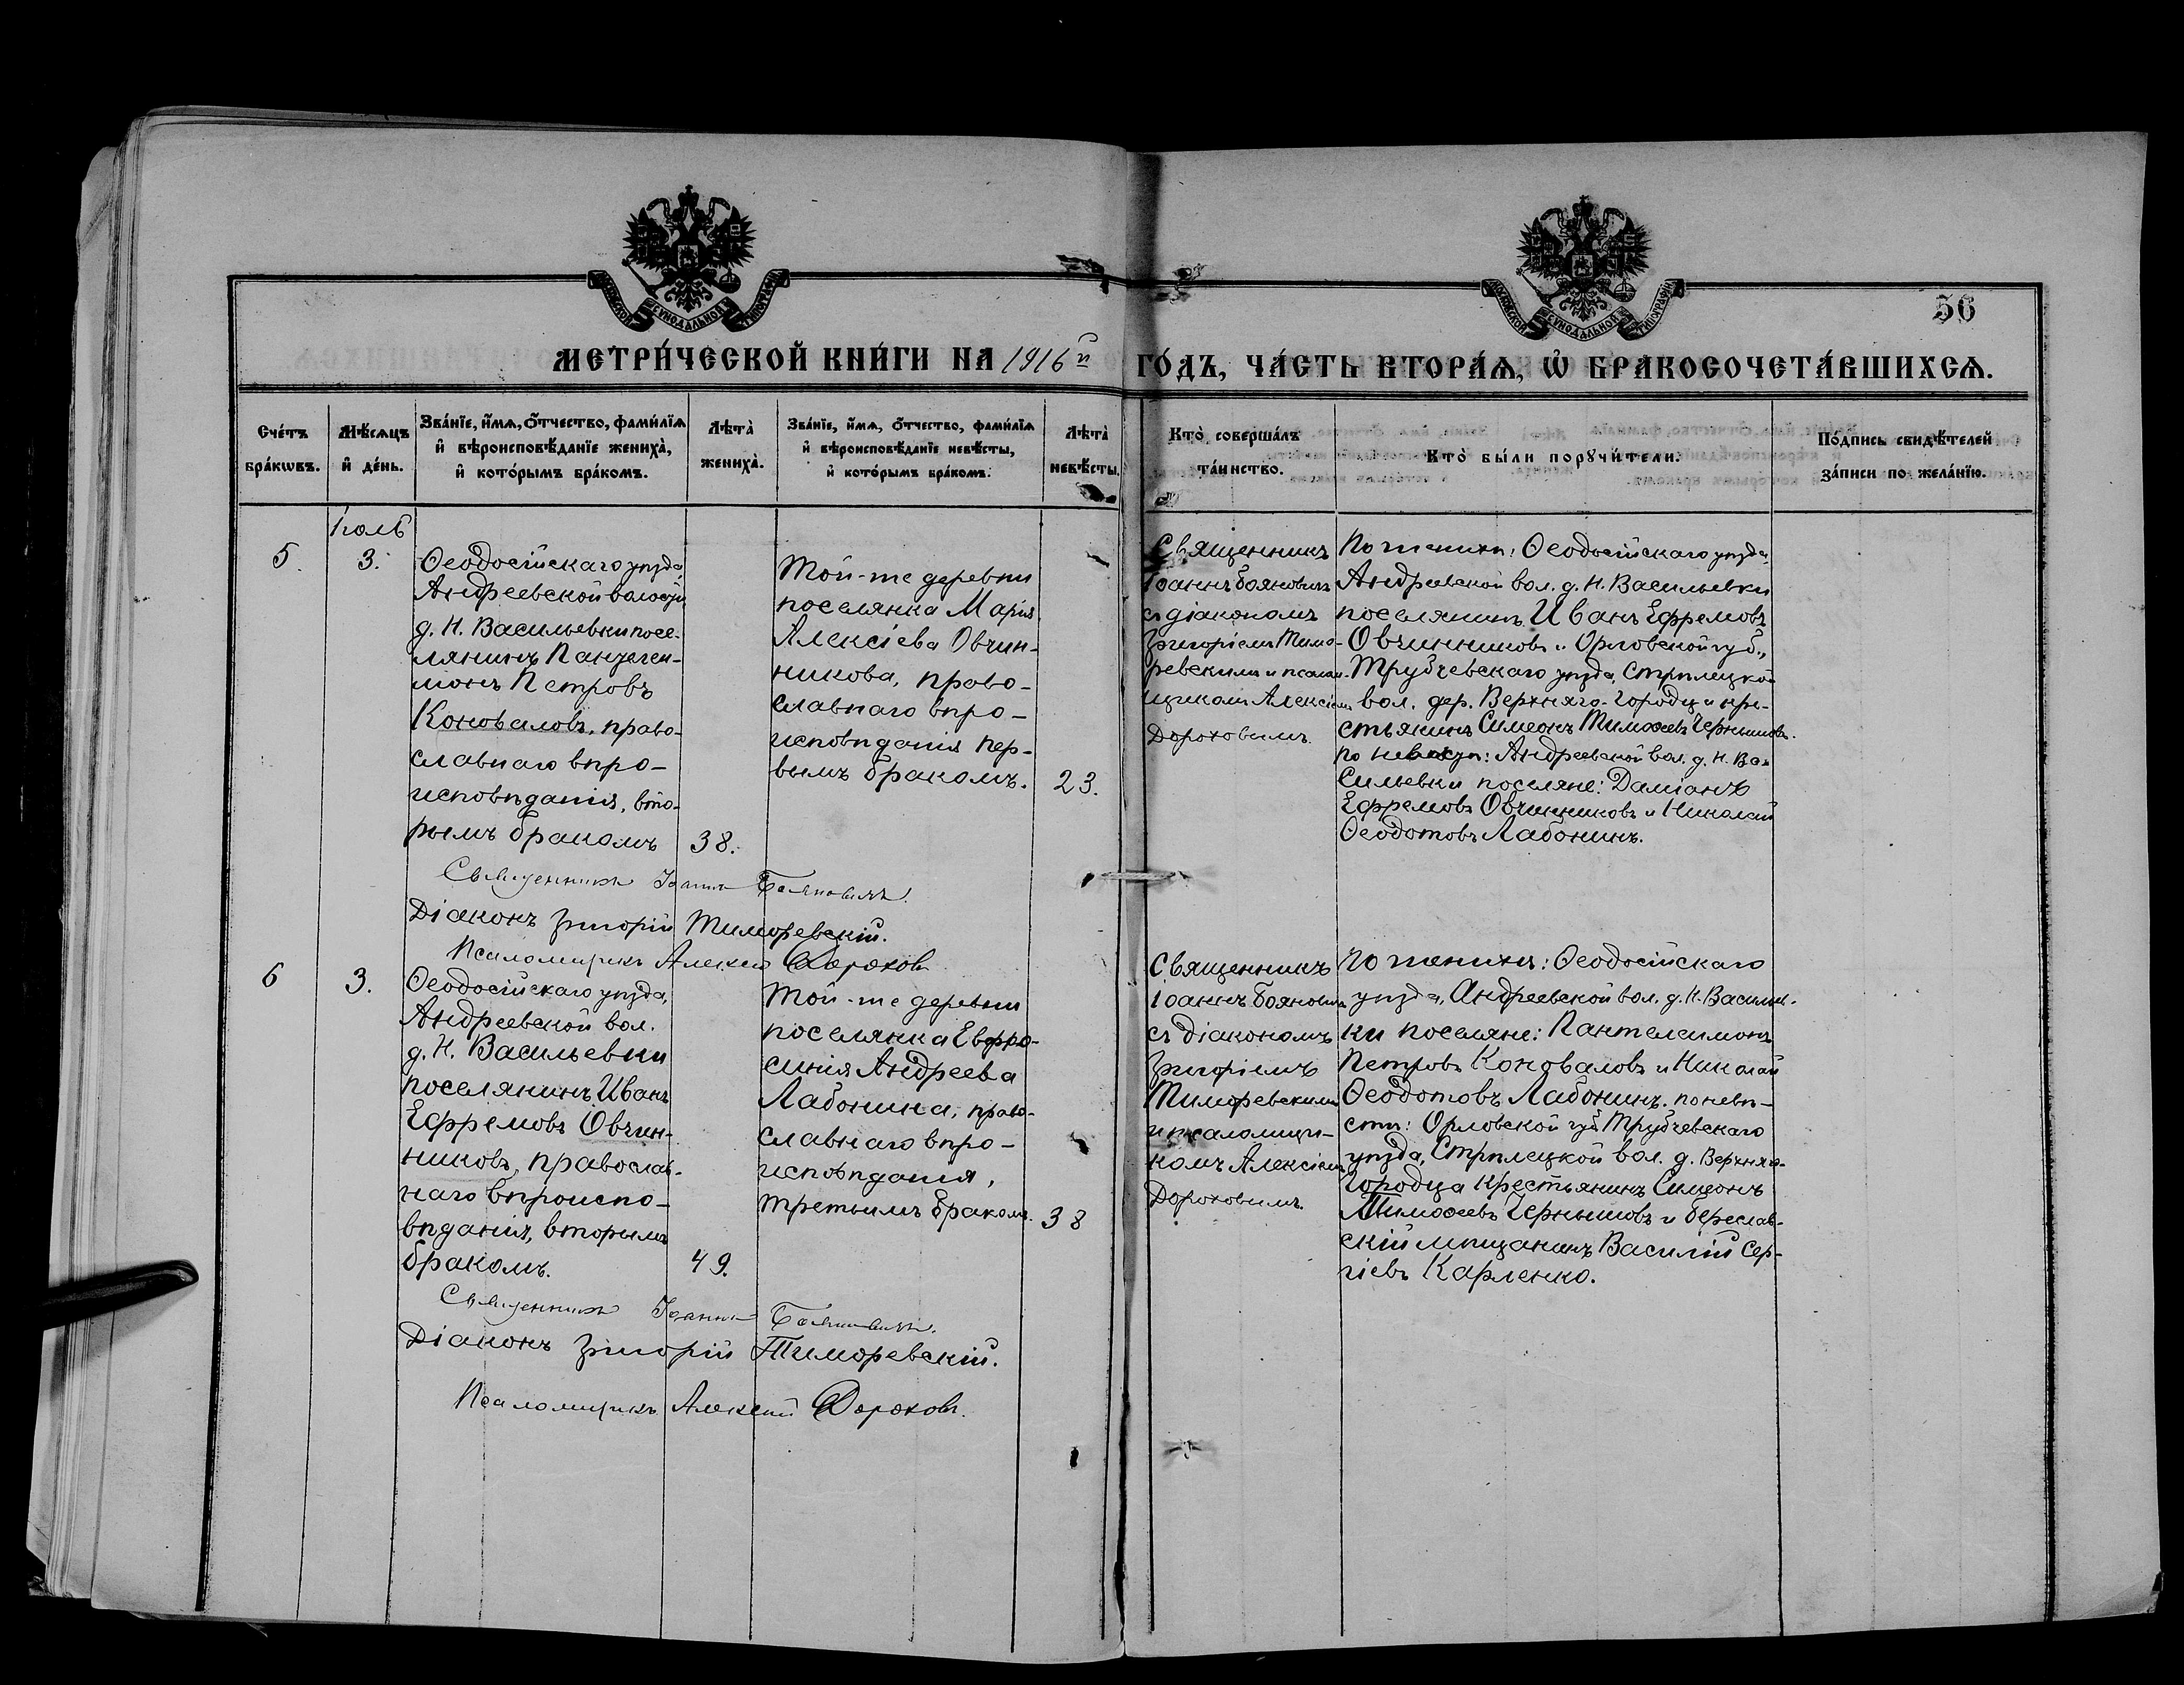 МОСКОВСКОЙ СѴНОДАЛЬНОЙ ТИПОГРАФІИ
МОСКОВСКОЙ СѴНОДАЛЬНОЙ ТИПОГРАФІИ
56
МЕТРИ́ЧЕСКОЙ КНИ́ГИ НА 1916й ГО́ДЪ, ЧА́СТЬ ВТОРА́Ѧ, Ѽ БРАКОСОЧЕТА́ВШИХСѦ.
Сче́тъ
бра́кѡвъ.
Мѣ́сѧцъ
и҆ де́нь.
Зва́нїе, и҆́мѧ, о҆́тчество, фами́лїѧ
и҆ вѣроисповѣ́данїе жениха̀,
и҆ кото́рымъ бра́комъ.
Лѣта̀
жениха̀.
Зва́нїе, и҆́мѧ, о҆́тчество, фами́лїѧ
и҆ вѣроисповѣ́данїе невѣ́сты,
и҆ кото́рымъ бра́комъ.
Лѣта̀
невѣ́сты.
Кто̀ соверша́лъ
та́инство.
Кто̀ бы́ли порꙋчи́тели.
По́дпись свидѣ́телей
за́писи по жела́нїю.
Іюль
5.
3.
Ѳеодосійскаго уѣзда
Андреевской волости
д. Н. Васильевки посе-
лянинъ Пантелеи-
монъ Петровъ
Коноваловъ, право-
славнаго вѣро-
исповѣданія, вто-
рымъ бракомъ
38.
Той-же деревни
поселянка Марія
Алексіева Овчин-
никова, право-
славнаго вѣро-
исповѣданія пер-
вымъ бракомъ.
23.
Священникъ
Іоаннъ Бояновичъ
съ діакономъ
Григоріемъ Тимо-
ревскимъ и псалом-
щикомъ Алексіемъ
Дороховымъ.
По женихѣ: Ѳеодосійскаго уѣзда,
Андреевской вол. д. Н. Васильевки
поселянинъ Иванъ Ефремовъ
Овчинниковъ и Орловской губ.,
Трубчевскаго уѣзда, Стрѣлецкой
вол. дер. Верхняго-Городца кре-
стьянинъ Симеонъ Тимоѳеевъ Чернышовъ.
по невѣстѣ: Андреевской вол. д. Н. Ва-
сильевки поселяне: Даміанъ
Ефремовъ Овчинниковъ и Николай
Ѳеодотовъ Лабонинъ.
Священникъ Іоаннъ Бояновичъ.
Діаконъ Григорій Тиморевскій.
Псаломщикъ Алексѣй Дороховъ
6
3.
Ѳеодосійскаго уѣзда,
Андреевской вол.
д. Н. Васильевки
поселянинъ Иванъ
Ефремовъ Овчин-
никовъ, православ-
наго вѣроиспо-
вѣданія, вторымъ
бракомъ.
49.
Той-же деревни
поселянка Евфро-
синія Андреева
Лабонина, право-
славнаго вѣро-
исповѣданія,
третьимъ бракомъ.
38
Священникъ
Іоаннъ Бояновичъ
съ діакономъ
Григоріемъ
Тиморевскимъ
и псаломщи-
комъ Алексіемъ
Дороховымъ.
По женихѣ: Ѳеодосійскаго
уѣзда, Андреевской вол. д. Н. Васильев-
ки поселяне: Пантелеимонъ
Петровъ Коноваловъ и Николай
Ѳеодотовъ Лабонинъ. по невѣ-
стѣ: Орловской губ. Трубчевскаго
уѣзда, Стрѣлецкой вол. д. Верхняго-
Городца крестьянинъ Симеонъ
Тимоѳеевъ Чернышовъ и Береслав-
скій мѣщанинъ Василій Сер-
гіевъ Карленко.
Священникъ Іоаннъ Бояновичъ.
Діаконъ Григорій Тиморевскій.
Псаломщикъ Алексѣй Дороховъ.